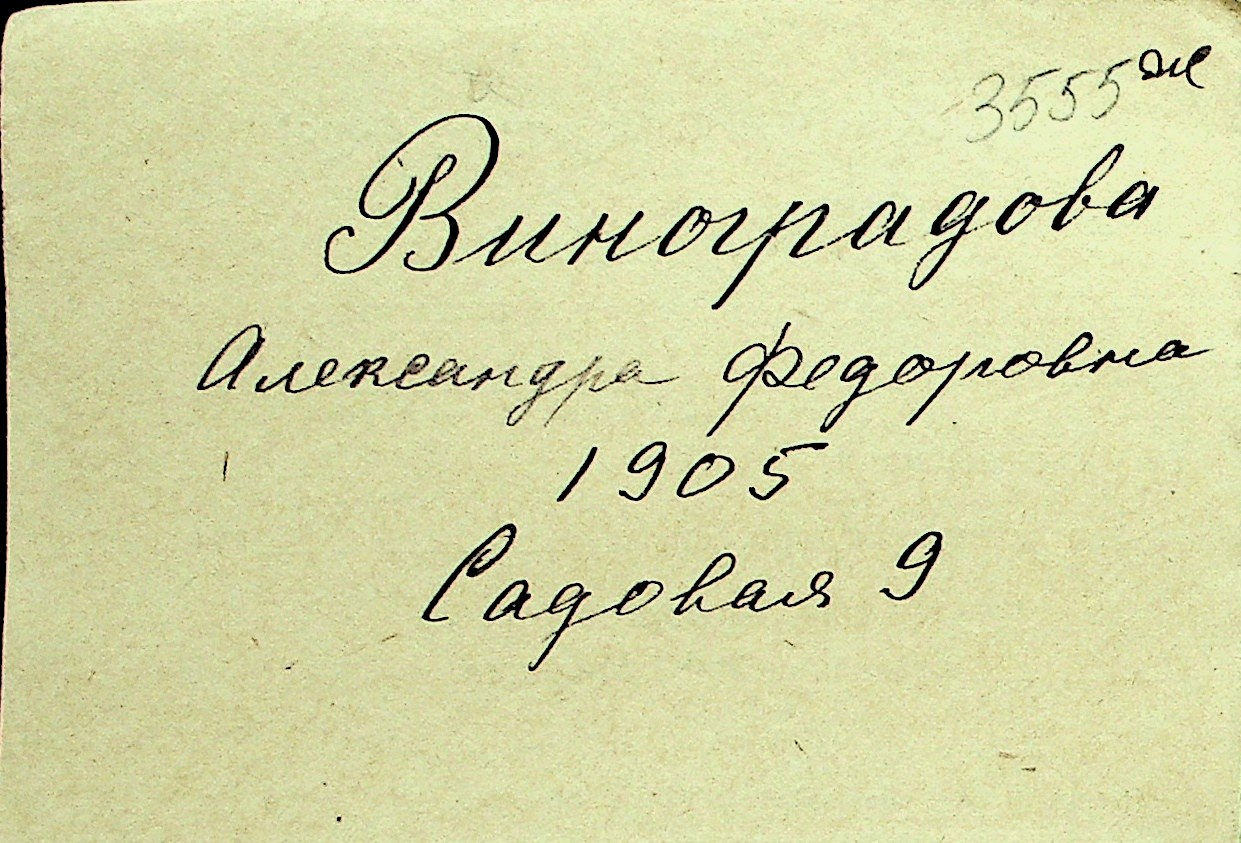 3555 ж
Виноградова
Александра Федоровна
1905
Садовая 9